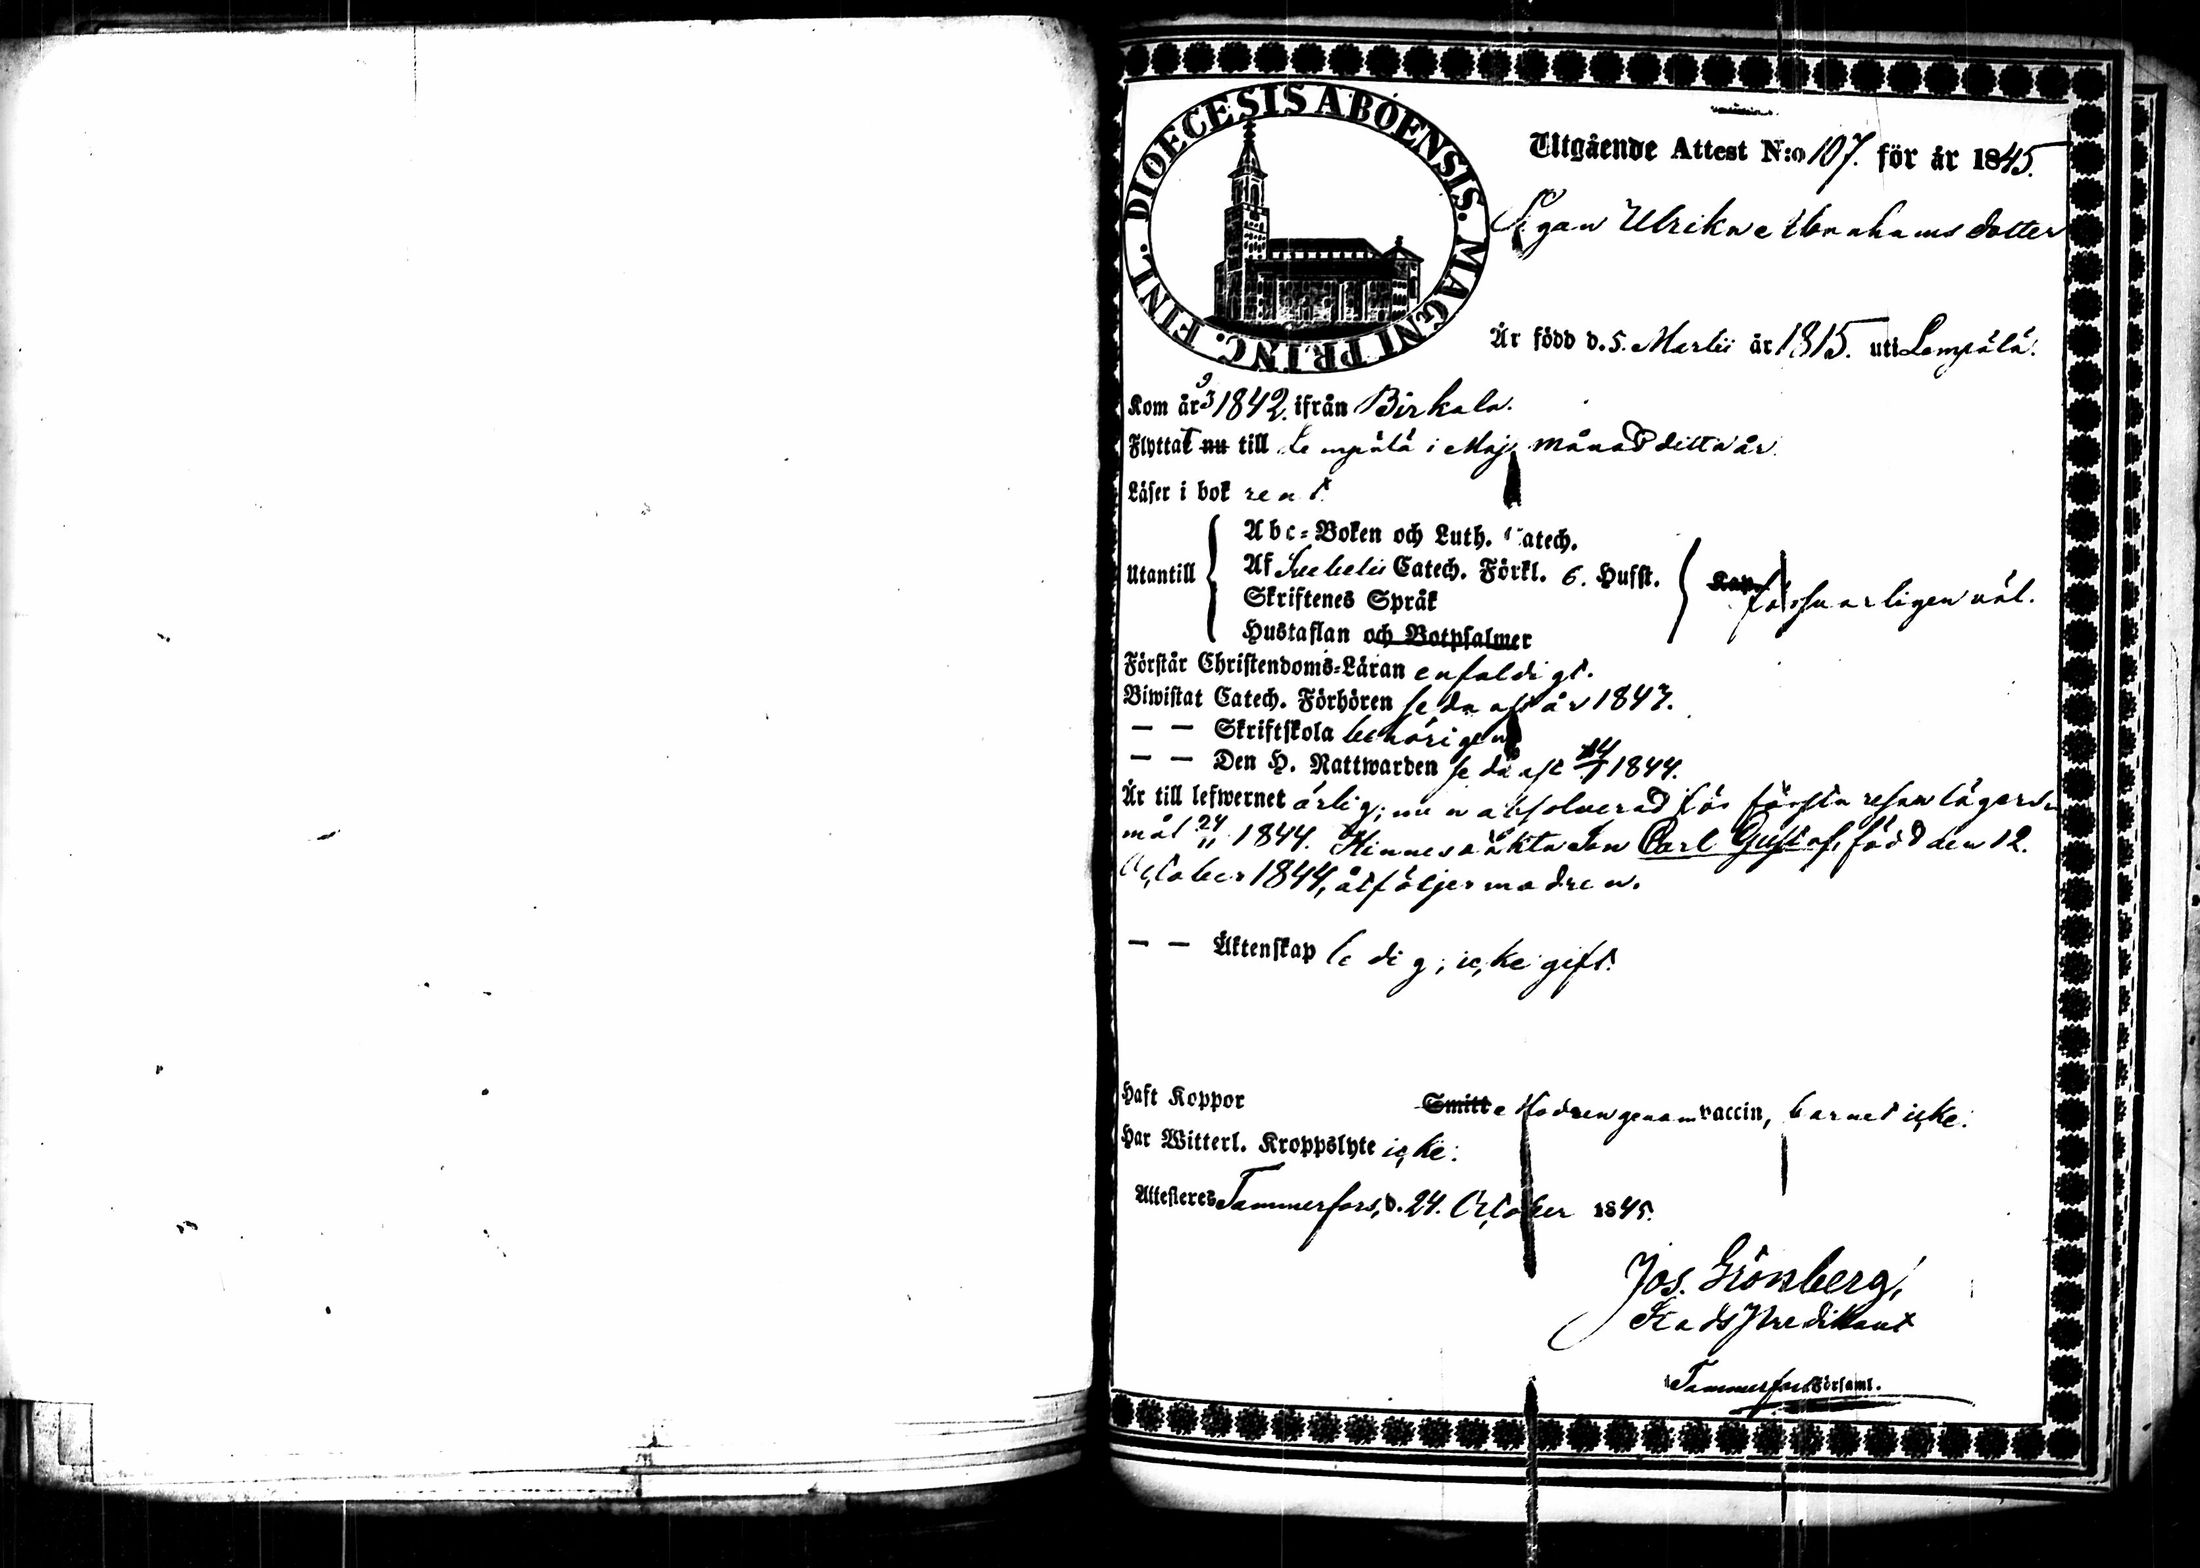 DIOECESIS ABOENSIS. MAGNI PRINC. FINL.
Utgående Attest N:o 107. för år 1845.
Pigan Ulrika Abrahamsdotter
Är född d. 5. Martii år 1815. uti Lempälä.
Kom år 1842. ifrån Birkala.
Flyttat nu till Lempälä i Maji månad detta år.
Läser i bok rent.
Utantill
Abc-Boken och Luth. Catech.
Af Svebelii Catech. Förkl. 6. Hufst.
Skriftenes Språk
Hustaflan och Botpsalmer
Kap. försvarligen väl.
Förstår Christendoms-Läran enfaldigt.
Biwistat Catech. Förhören sednast år 1843.
— — Skriftskola behörigen
— — Den H. Nattwarden sednast 1844.
Är till lefwernet ärlig; men absolverad för första resan lägers-
mål 24/11 1844. Hennes oäkta Son Carl Gustaf, född den 12.
October 1844, åtföljer modren.
— — Äktenskap ledig, icke gift.
Haft Koppor Smitt Modren genom vaccin, barnet icke.
Har Witterl. Kroppslyte icke.
Attesteres Tammerfors, d. 24. October 1845.
Jos. Grönberg,
Stads Predikant
Tammerfors Församl.